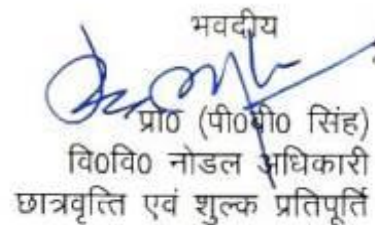 भवदीय
प्रो0 (पी0वी0 सिंह)
वि0वि0 नोडल अधिकारी
छात्रवृत्ति एवं शुल्क प्रतिपूर्ति